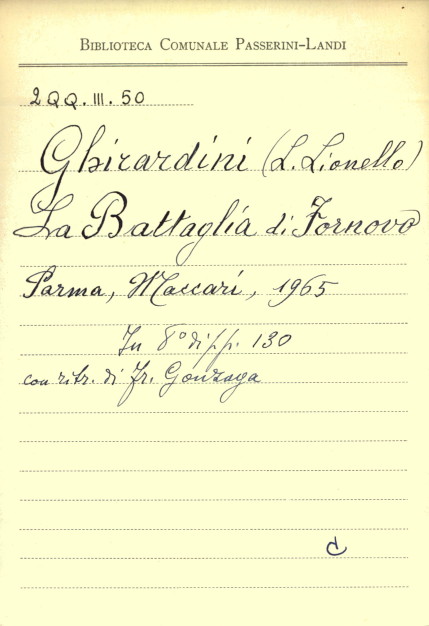 BIBLIOTECA COMUNALE PASSERINI-LANDI
2 QQ. III. 50
Ghirardini (L. Lionello)
La Battaglia di Fornovo
Parma, Maccari, 1965
In 8° di pp. 130
con ritr. di Fr. Gonzaga
d